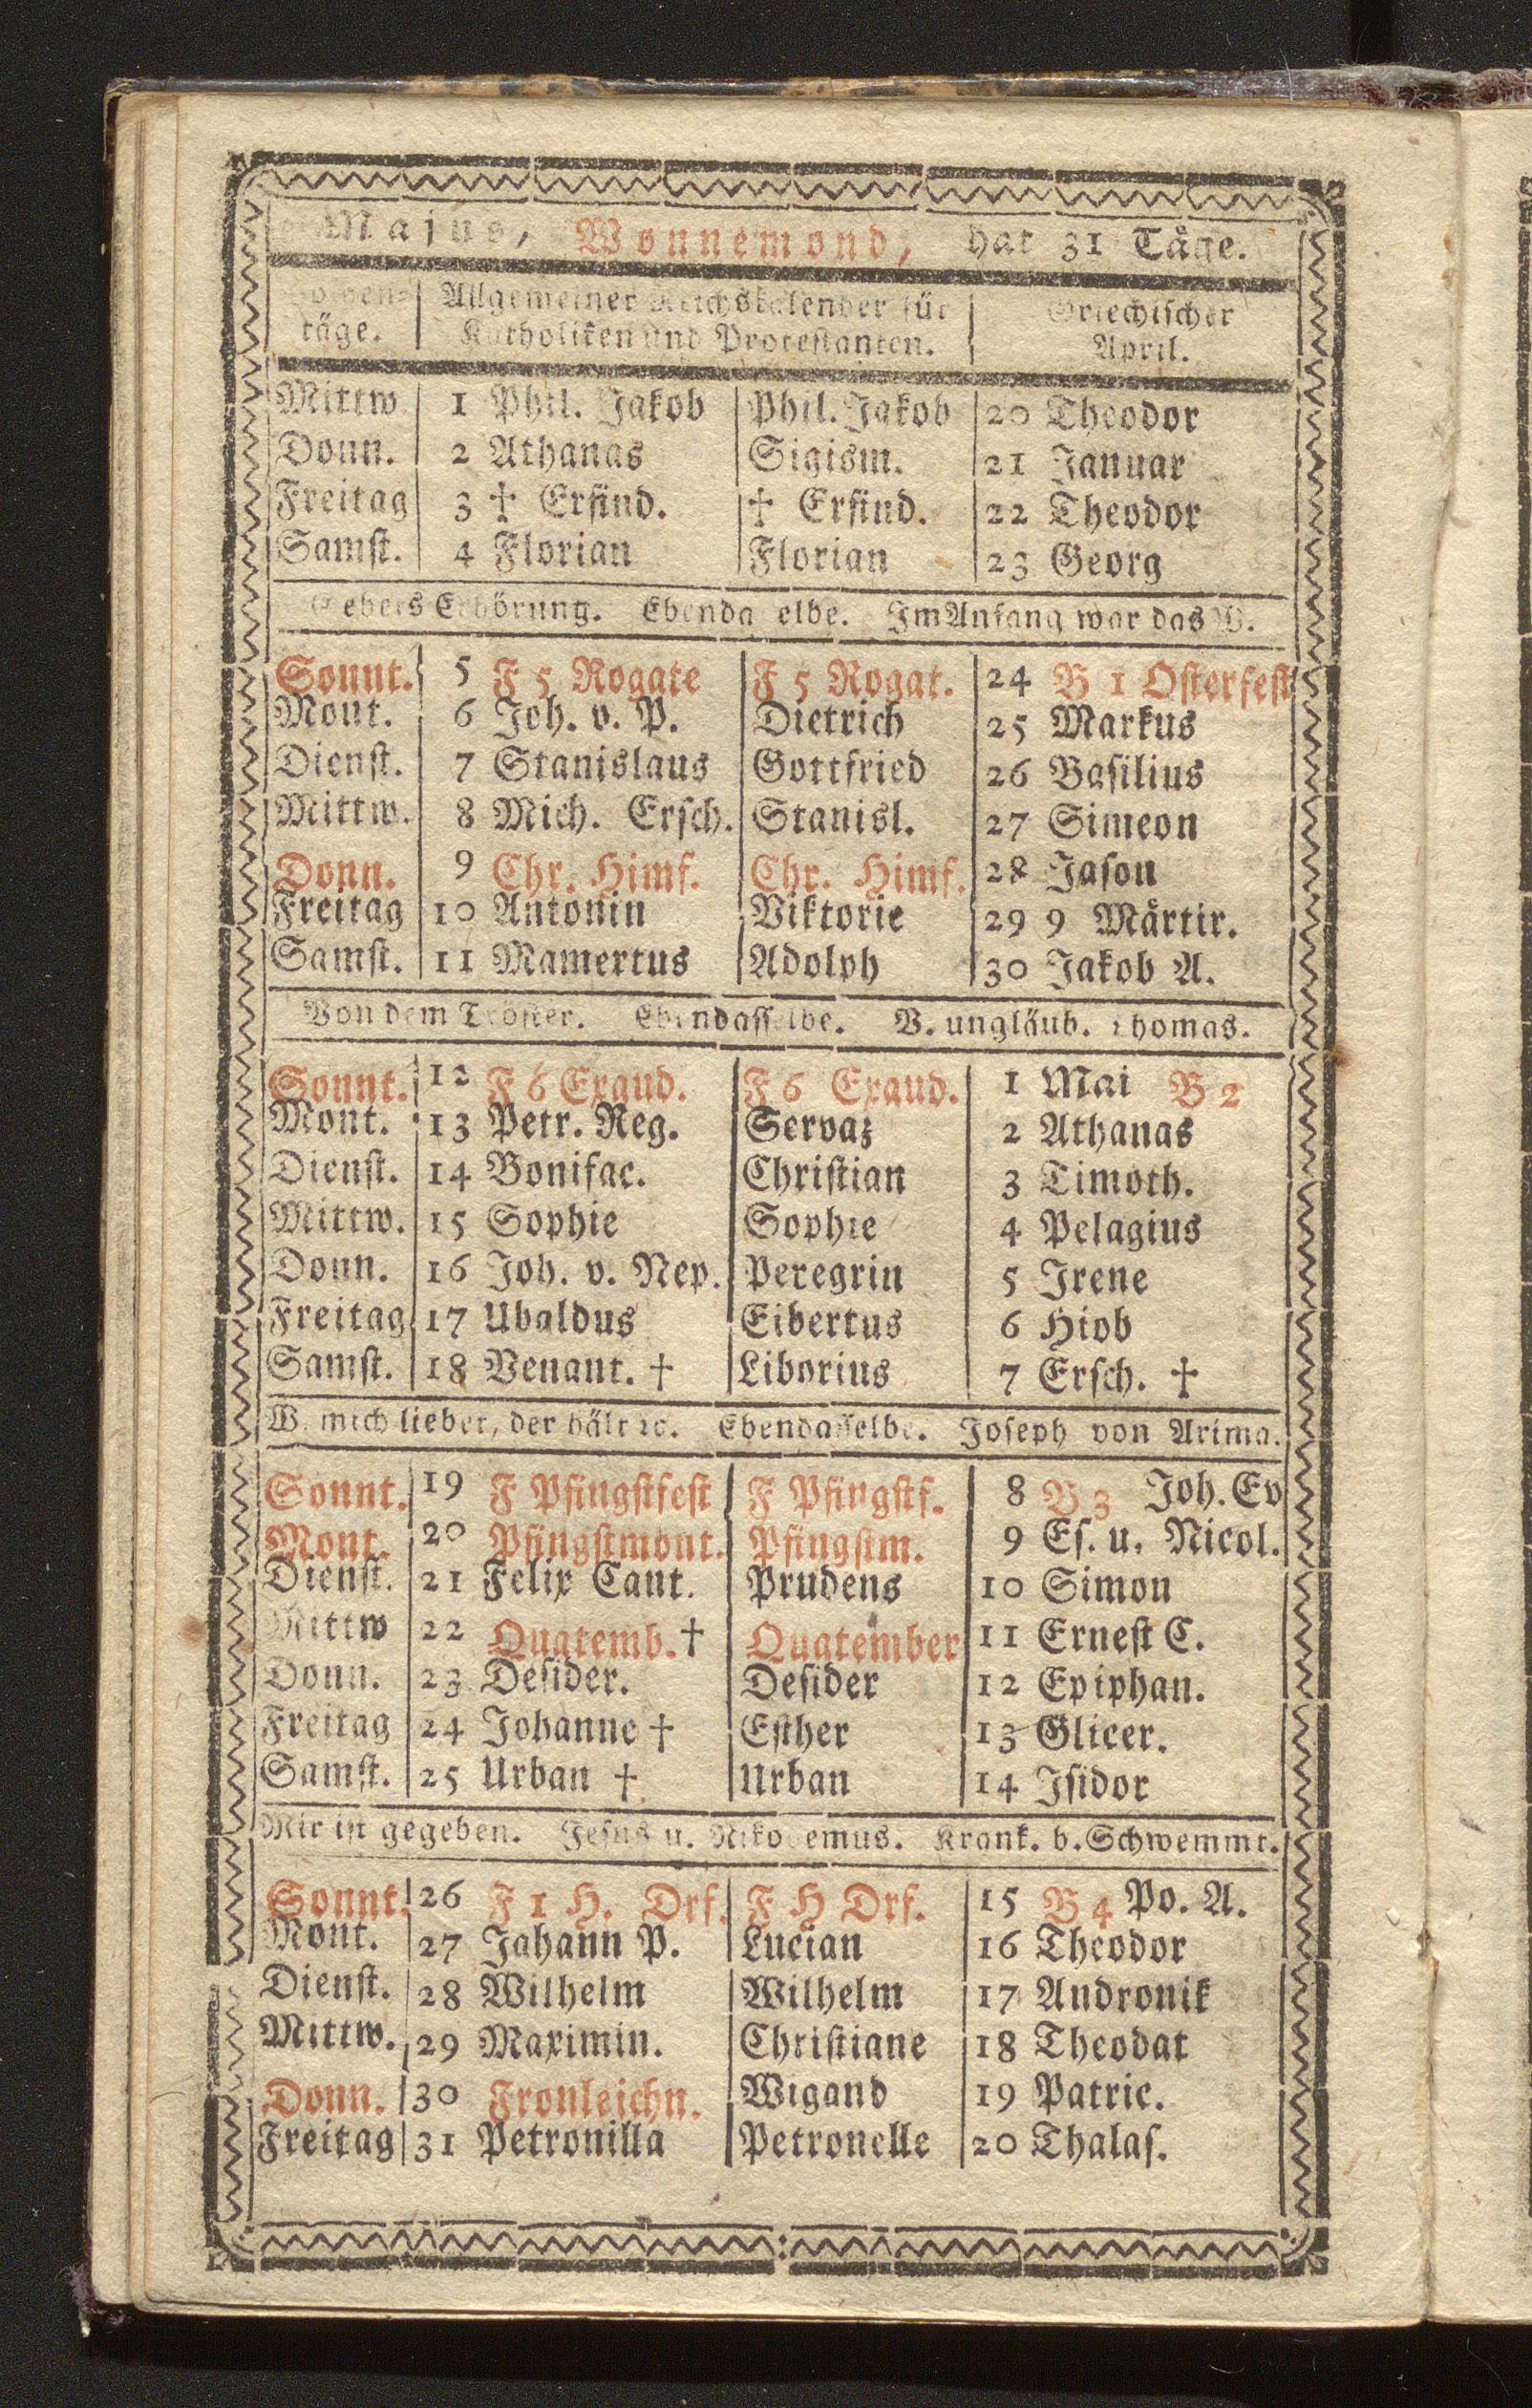 Majus, Wonnemond, hat 31 Täge.
täge. Allgemeiner Reichskalender für Katholiken und Protestanten. Griechischer April.
Mittw 1 Phil. Jakob Phil. Jakob 20 Theodor
Donn. 2 Athanas Sigism. 21 Januar
Freitag 3 † Erfind. † Erfind. 22 Theodor
Samst. 4 Florian Florian 23 Georg
Gebets Erhörung. Ebenda elbe. Im Anfang war das W.
Sonnt. 5 F 5 Rogate F 5 Rogat. 24 B 1 Osterfest
Mont. 6 Joh. v. P. Dietrich 25 Markus
Dienst. 7 Stanislaus Gottfried 26 Basilius
Mittw. 8 Mich. Ersch. Stanisl. 27 Simeon
Donn. 9 Chr. Himf. Chr. Himf. 28 Jason
Freitag 10 Antonin Viktorie 29 9 Märtir.
Samst. 11 Mamertus Adolph 30 Jakob A.
Von dem Tröster. Ebendasselbe. V. ungläub. Thomas.
Sonnt. 12 F 6 Exaud. F 6 Exaud. 1 Mai B 2
Mont. 13 Petr. Reg. Servaz 2 Athanas
Dienst. 14 Bonifac. Christian 3 Timoth.
Mittw. 15 Sophie Sophie 4 Pelagius
Donn. 16 Joh. v. Nep. Peregrin 5 Irene
Freitag 17 Ubaldus Eibertus 6 Hiob
Samst. 18 Venant. † Liborius 7 Ersch. †
W. mich liebet, der hält ꝛc. Ebendasselbe. Joseph von Arima.
Sonnt. 19 F Pfingstfest F Pfingstf. 8 B 3 Joh. Ev
Mont. 20 Pfingstmont. Pfingstm. 9 Es. u. Nicol.
Dienst. 21 Felix Cant. Prudens 10 Simon
Mittw 22 Quatemb. † Quatember 11 Ernest C.
Donn. 23 Desider. Desider 12 Epiphan.
Freitag 24 Johanne † Esther 13 Glicer.
Samst. 25 Urban † Urban 14 Isidor
Mir ist gegeben. Jesus u. Nikodemus. Krank. b. Schwemmt.
Sonnt. 26 F 1 H. Drf. F H Drf. 15 B 4 Po. A.
Mont. 27 Jahann P. Lucian 16 Theodor
Dienst. 28 Wilhelm Wilhelm 17 Andronik
Mittw. 29 Maximin. Christiane 18 Theodat
Donn. 30 Fronleichn. Wigand 19 Patric.
Freitag 31 Petronilla Petronelle 20 Thalas.